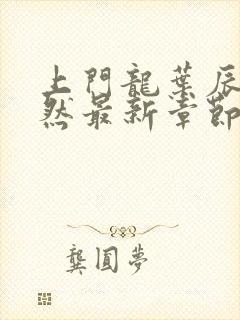 上門龍葉辰
然最新章節
龔圓夢